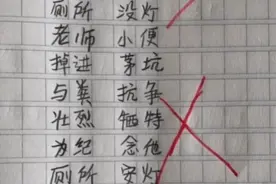 厕所 没灯
老师 小便
掉进 茅坑
与粪 抗争
壮烈 牺牲
为纪 念他
厕所 安灯